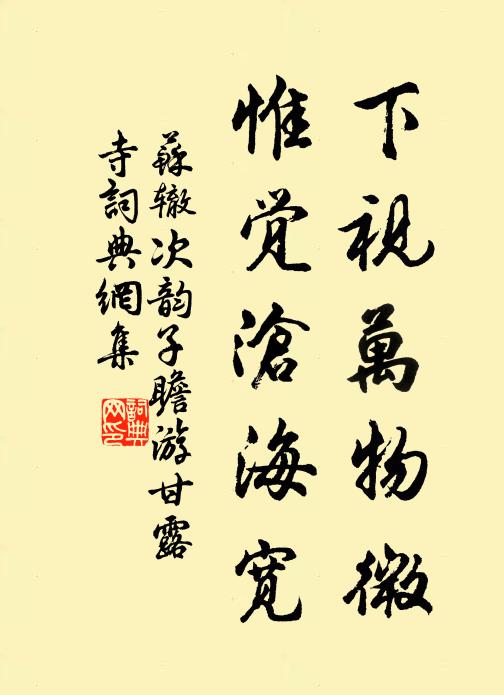 下視萬物微
惟觉滄海寬
蘇辙次韵子瞻游甘露
寺詞典網集
詞典
网印